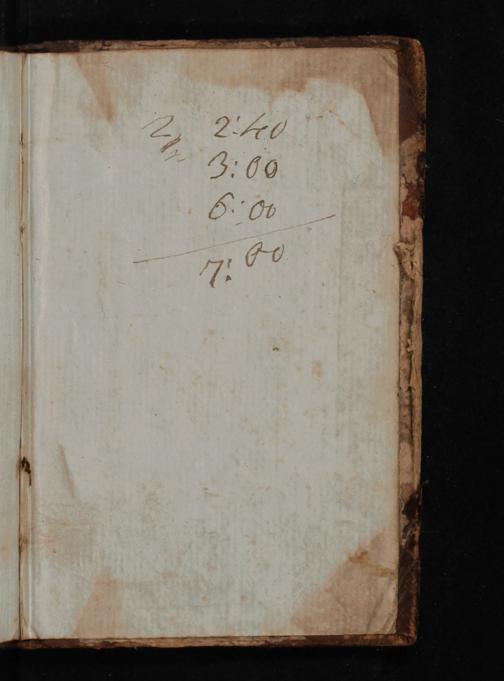 2 2:40
3:00
6:00
7:00